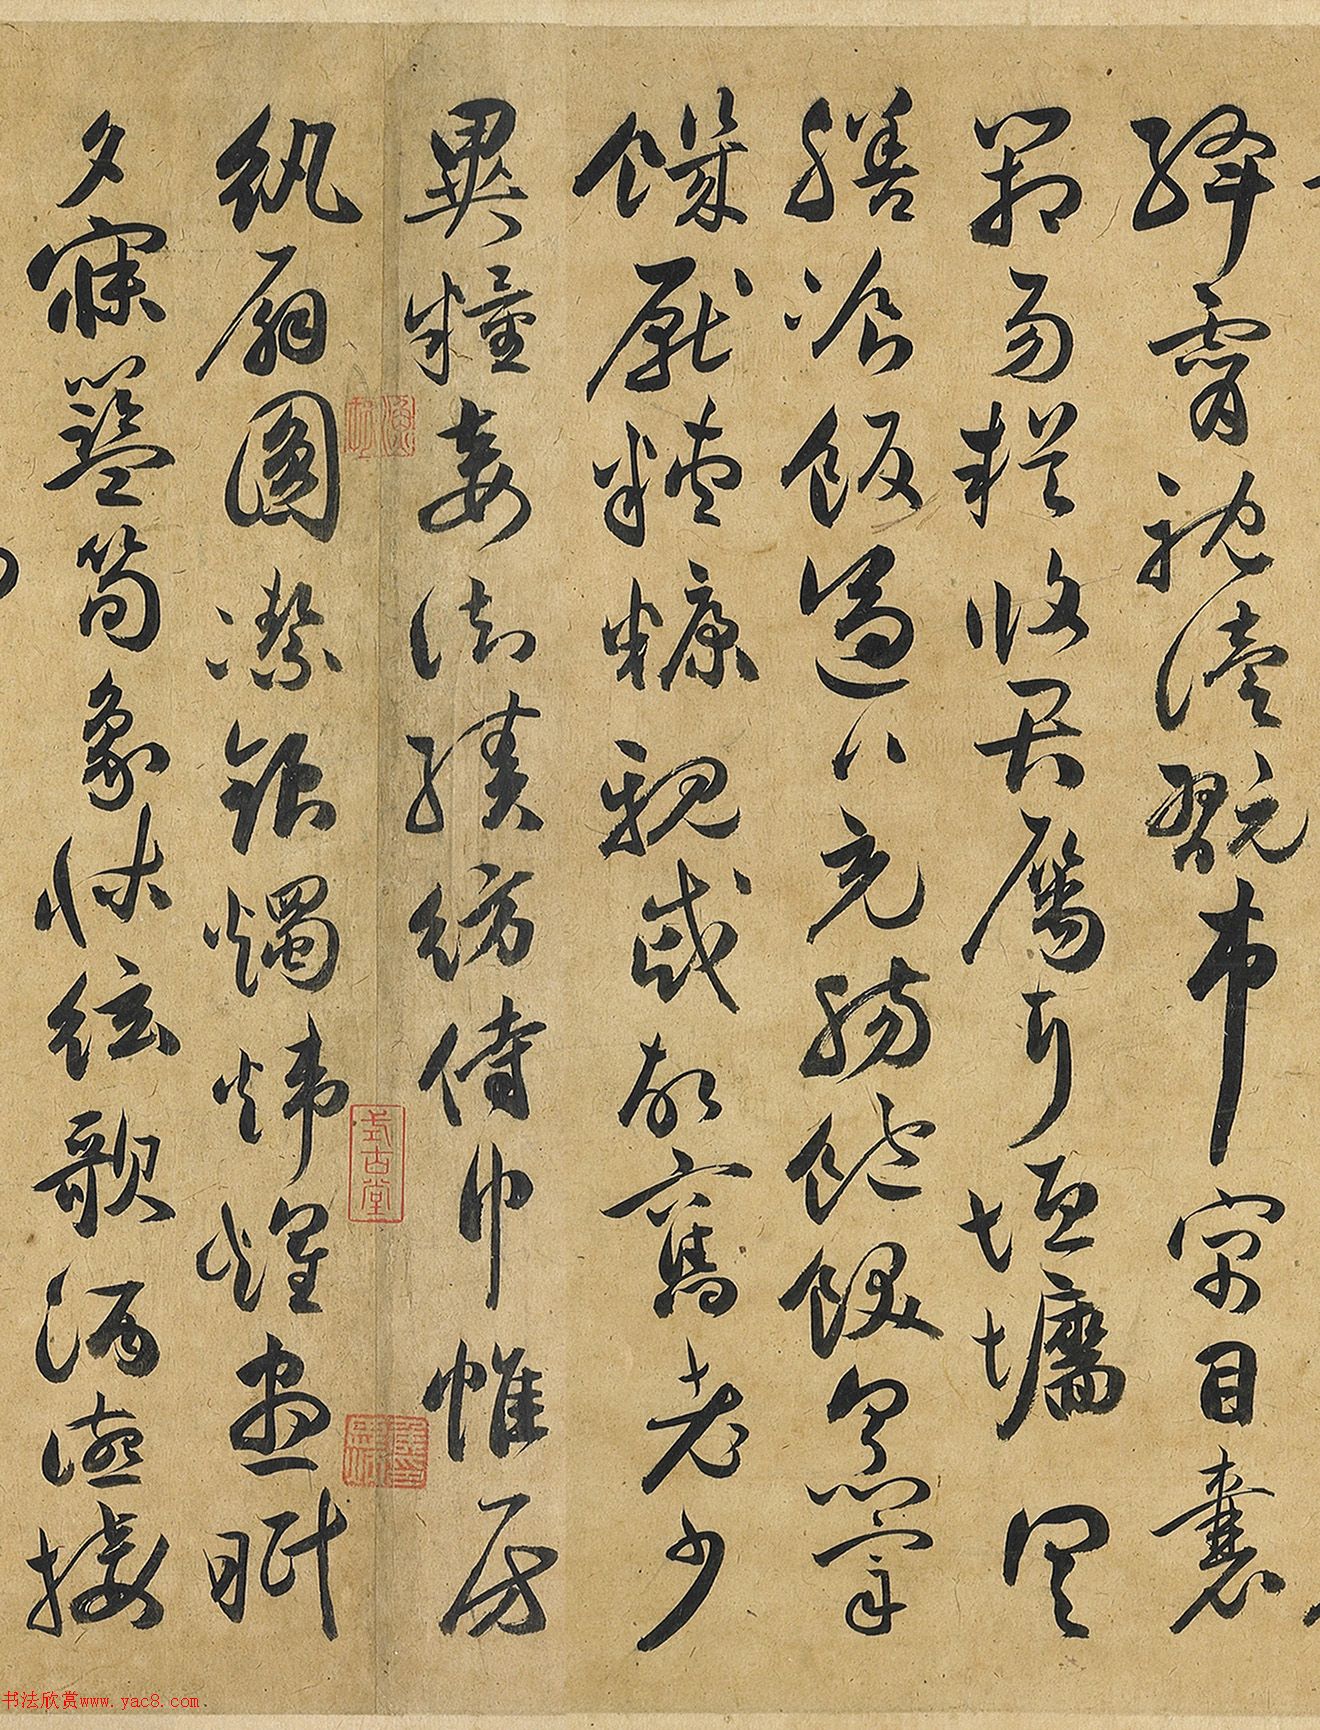 絳霄耽讀翫市寓目囊
箱易輶攸畏屬耳垣墻具
膳飡飯適口充腸飽飫烹宰
饑厭糟糠親戚故舊老少
異糧妾御績紡侍巾帷房
紈扇圓潔銀燭煒煌晝眠
夕寐籃筍象牀絃歌酒讌接
式古堂
书法欣赏www.yac8.com